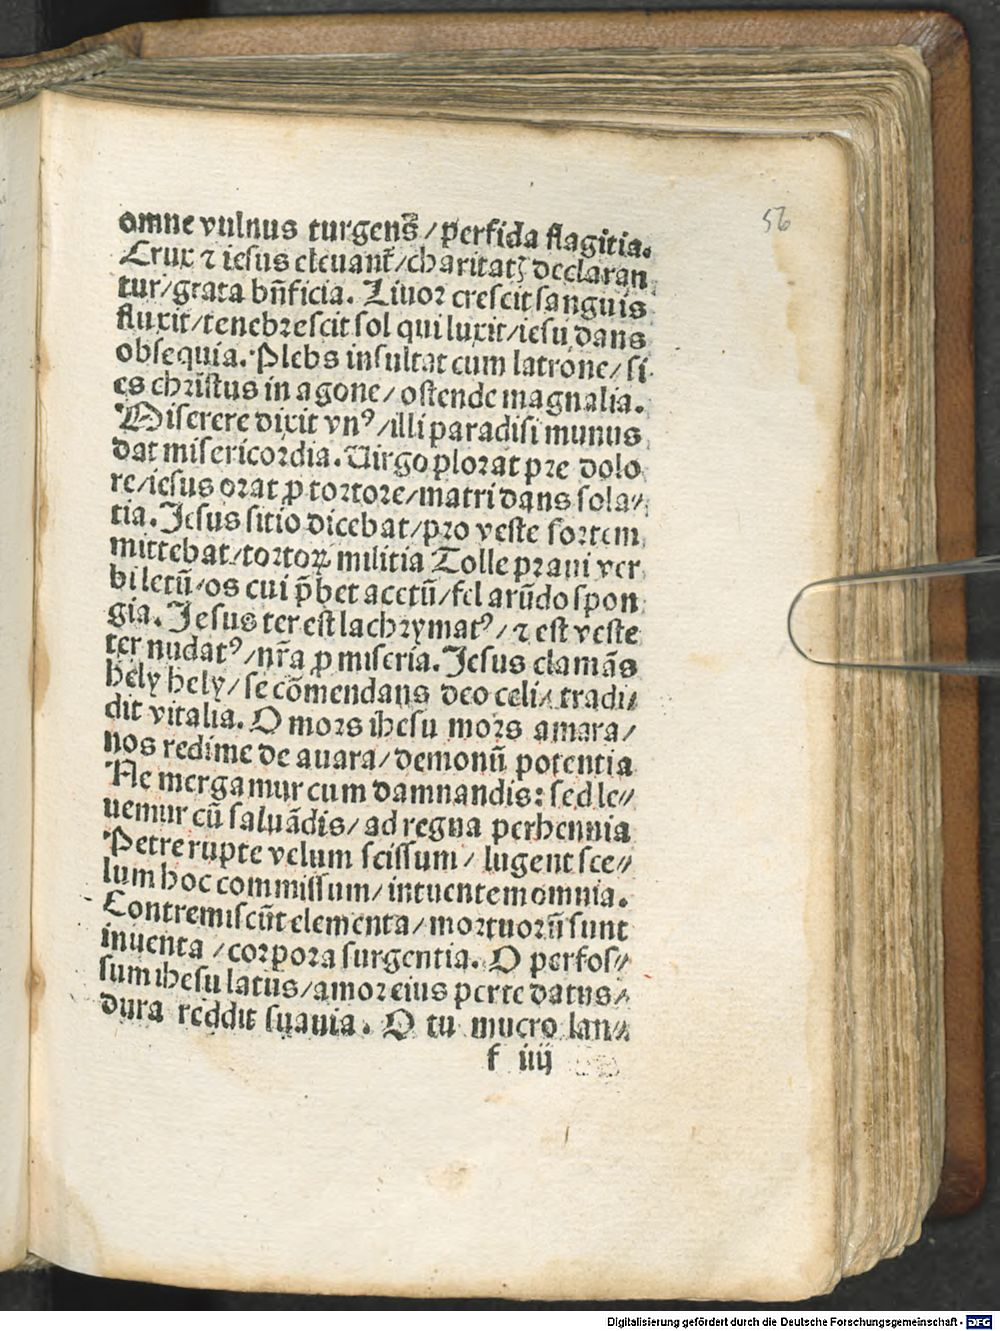 56
omne vulnus turgens̃ / ꝑerfida flagitia.
Crux ⁊ iesus eleuant̃ / charitatꝫ declaran
tur / grata bñficia. Liuor crescit sanguis
fluxit / tenebrescit sol qui luxit / iesu dans
obsequia. Plebs insultat cum latrone / si
es christus in agone / ostende magnalia.
Miserere dixit vnꝰ / illi paradisi munus
dat misericordia. Uirgo plorat pre dolo
re / iesus orat ꝓ tortore / matri dans sola⸗
tia. Jesus sitio dicebat / pro veste sortem
mittebat / tortoꝝ militia Tolle praui ver
bi letũ / os cui p̃bet acetũ / fel arũdo spon
gia. Jesus ter est lachrymatꝰ / ⁊ est veste
ter nudatꝰ / nr̃a ꝓ miseria. Jesus clamãs
hely hely / se cõmendans deo celi / tradi⸗
dit vitalia. O mors ihesu mors amara /
nos redime de auara / demonũ potentia
Ne mergamur cum damnandis: sed le⸗
uemur cũ saluãdis / ad regna perhennia
Petre rupte velum scissum / lugent sce⸗
lum hoc commissum / intuentem omnia.
Contremiscũt elementa / mortuorũ sunt
inuenta / corpora surgentia. O perfos⸗
sum ihesu latus / amor eius per te datus /
dura reddit suauia. O tu mucro lan⸗
f iiij
Digitalisierung gefördert durch die Deutsche Forschungsgemeinschaft - DFG